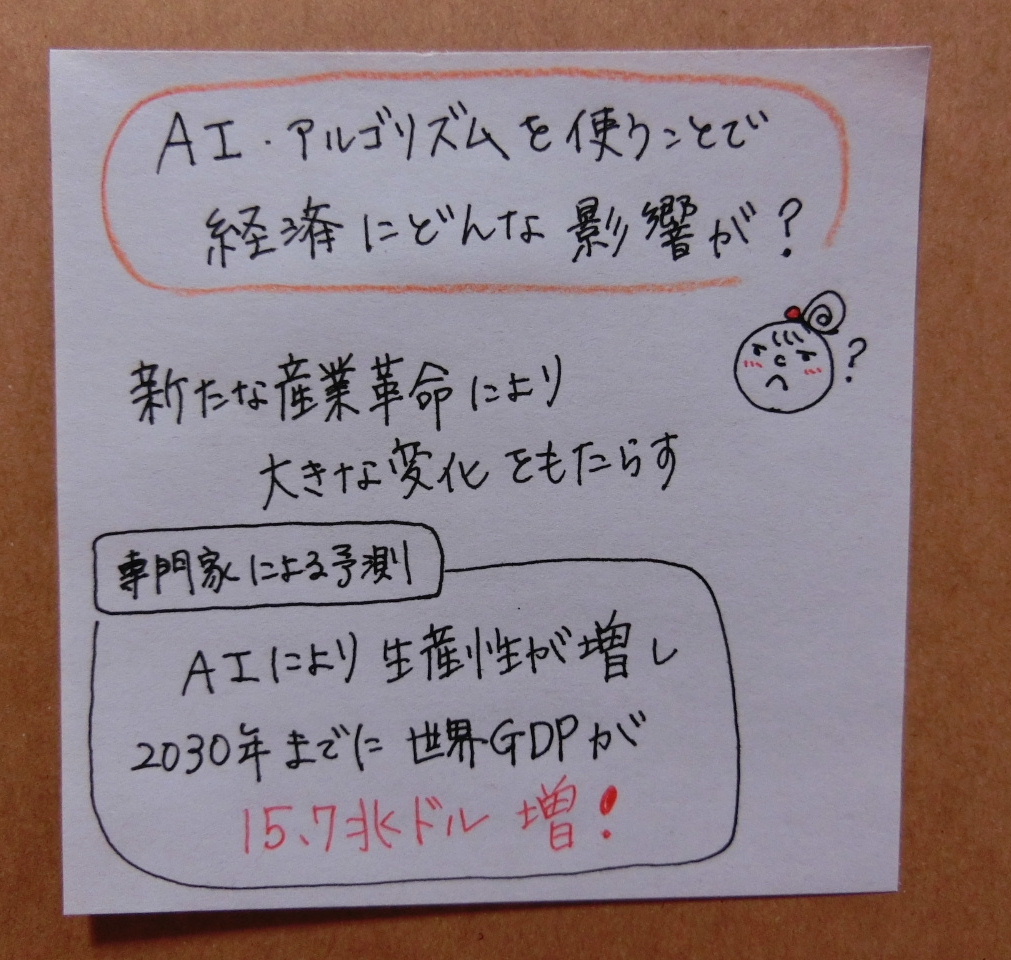 AI・アルゴリズムを使うことで
経済にどんな影響が？
?
新たな産業革命により
大きな変化をもたらす
専門家による予測
AIにより生産性が増し
2030年までに世界GDPが
15.7兆ドル増！